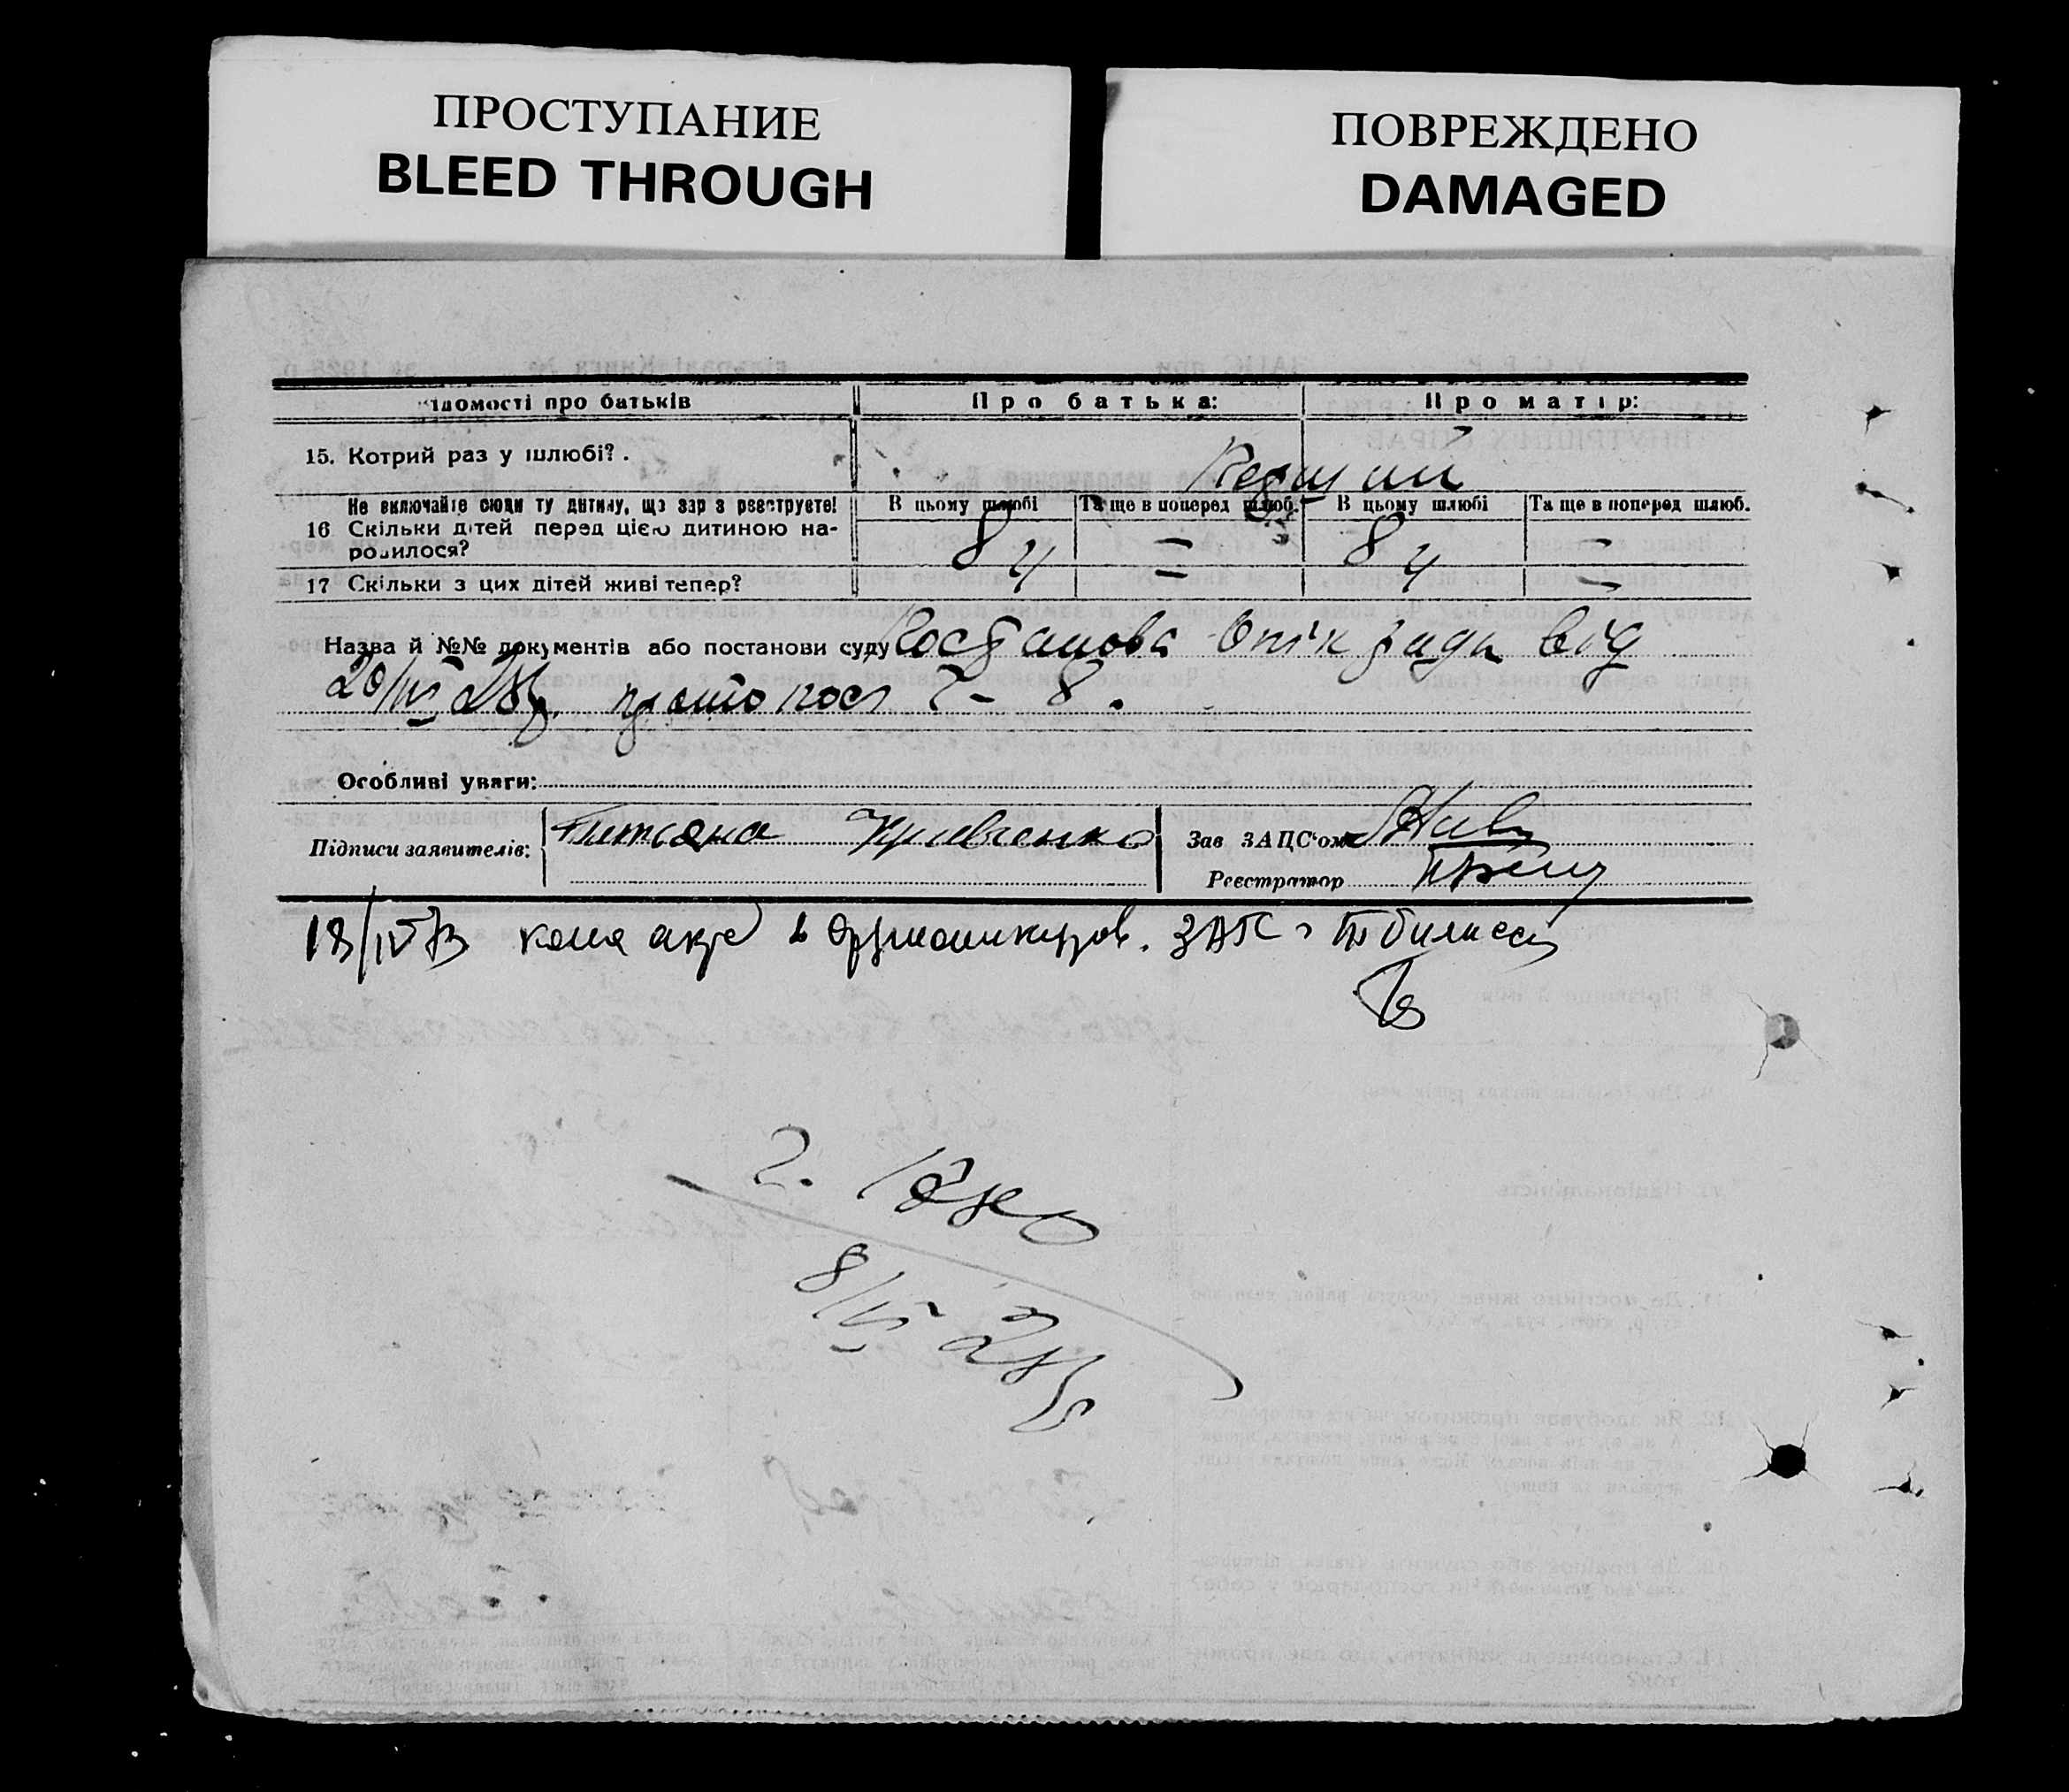 ПРОСТУПАНИЕ
BLEED THROUGH
ПОВРЕЖДЕНО
DAMAGED
ідомості про батьків
Про батька:
Про матір:
15. Котрий раз у шлюбі?.
Первий
Не включайте сюди ту дитину, що зараз реєструєте!
16 Скільки дітей перед цією дитиною на-
родилося?
В цьому шлюбі
Та ще в поперед шлюб.
В цьому шлюбі
Та ще в поперед шлюб.
8 – 8 –
17 Скільки з цих дітей живі тепер?
4 – 4 –
Назва й №№ документів або постанови суду Постанова Опікради від
20/IV 28р. протокол ч- 8.
Особливі уваги:
Підписи заявителів: Кривченко
Зав ЗАЦС'ом
Реєстратор
18/IV 73 копя акта в Орджоникидзов. ЗАГС г Тбилисси
2.
8/VI 28р